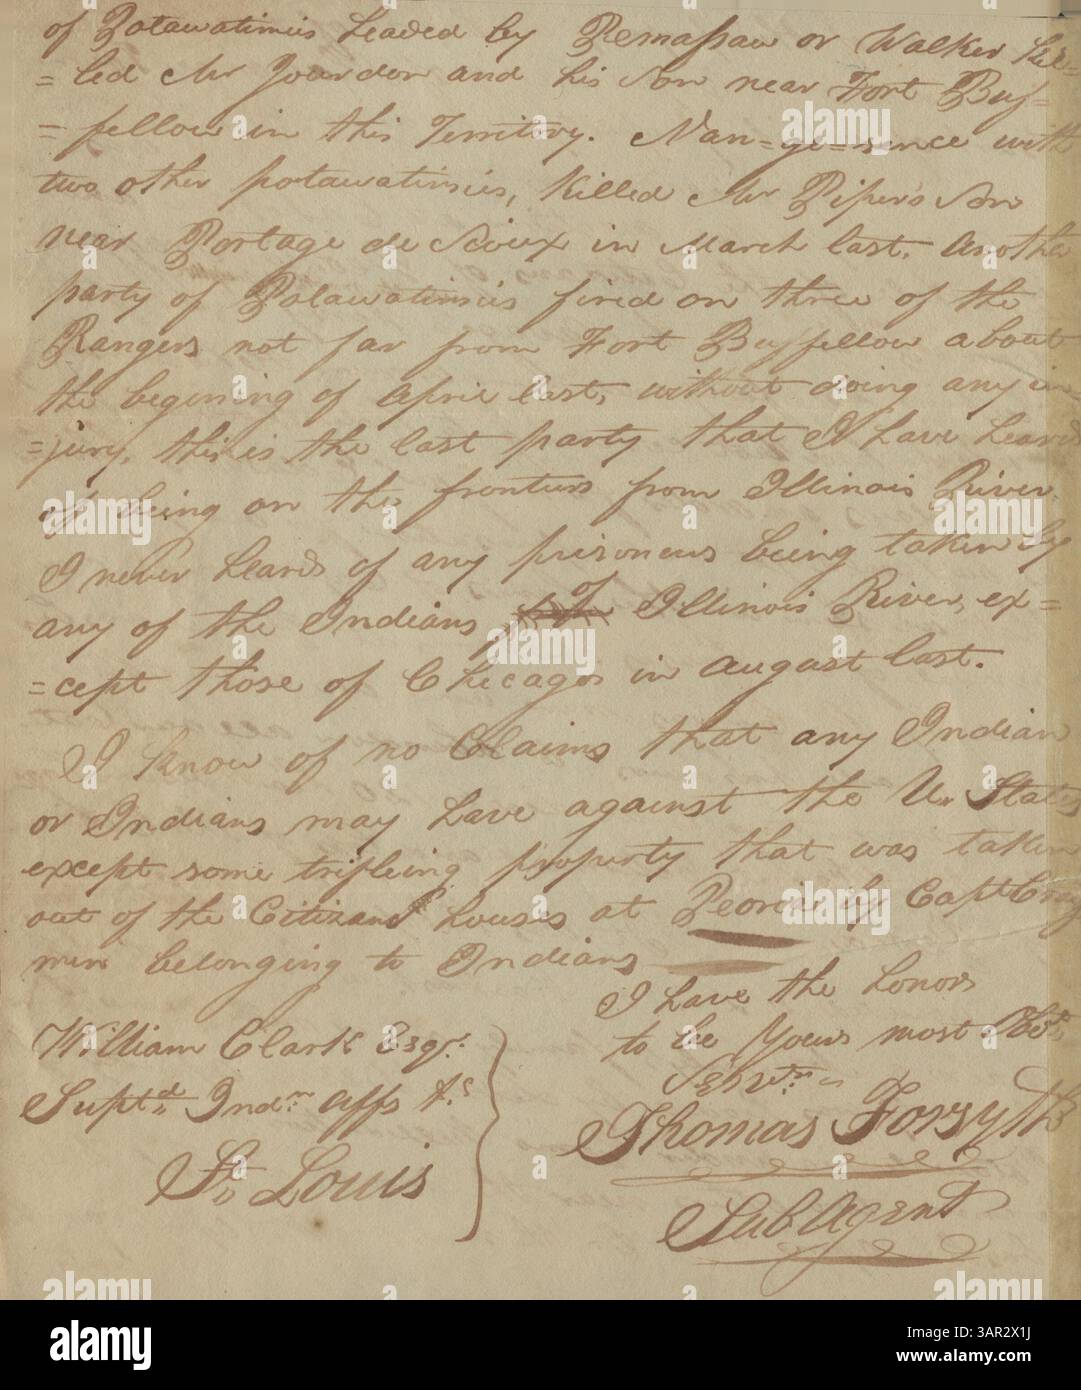 of Potawatimies headed by Pemassaw or Walker kil=
=led Mr Jourdon and his Son near Fort Buf=
=fellow in this Territory. Nan=ge=sence with
two other potawatimies, killed Mr Piper's Son
near Portage de Sioux in March last. Another
party of Potawatimies fired on three of the
Rangers not far from Fort Buffellow about
the begining of April last, without doing any in
=jury, this is the last party that I have heard
of being on the frontiers from Illinois River.
I never heard of any prisoners being taken by
any of the Indians of Illinois River, ex=
=cept those of Chicago in august last.
I know of no Claims that any Indian
or Indians may have against the U. States
except some trifleing property that was taken
out of the Citizens houses at Peoria by Capt Craig
men belonging to Indians
I have the honor
to be Yours most Obt
Servn.
William Clark Esqr.
Suptd Indn affs &c
St Louis
Thomas Forsyth
Sub Agent
alamy
Image ID: 3AR2X1J
www.alamy.com